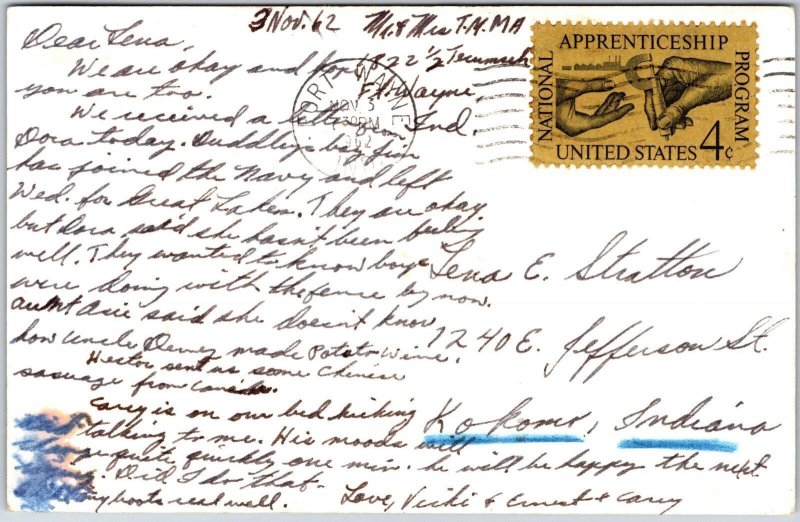 3 Nov. 62 Mr. & Mrs T. H. MA
1822 1/2 Tecumseh
Ft. Wayne,
Ind.
Dear Lena,
We are okay and hope
you are too.
We received a letter from
Dora today. Duddley's boy Jim
has joined the Navy and left
Wed. for Great Lakes. They are okay
but Dora said she hasn't been feeling
well. They wanted to know how
were doing with the fence by now.
Aunt said she doesn't know
how Uncle Dewey made Potato wine.
Hestor sent us some Chinese
sausage from Canada.
Carey is on our bed kicking
talking to me. His moods will
quite quickly one min. he will be happy the next
Did I do that
boots real well. Love, Vicki & Ernest & Carey
FORT WAYNE
NOV 3
30 PM
1962
NATIONAL
APPRENTICESHIP
PROGRAM
UNITED STATES 4¢
Lena E. Stratton
1240 E. Jefferson St.
Kokomo, Indiana